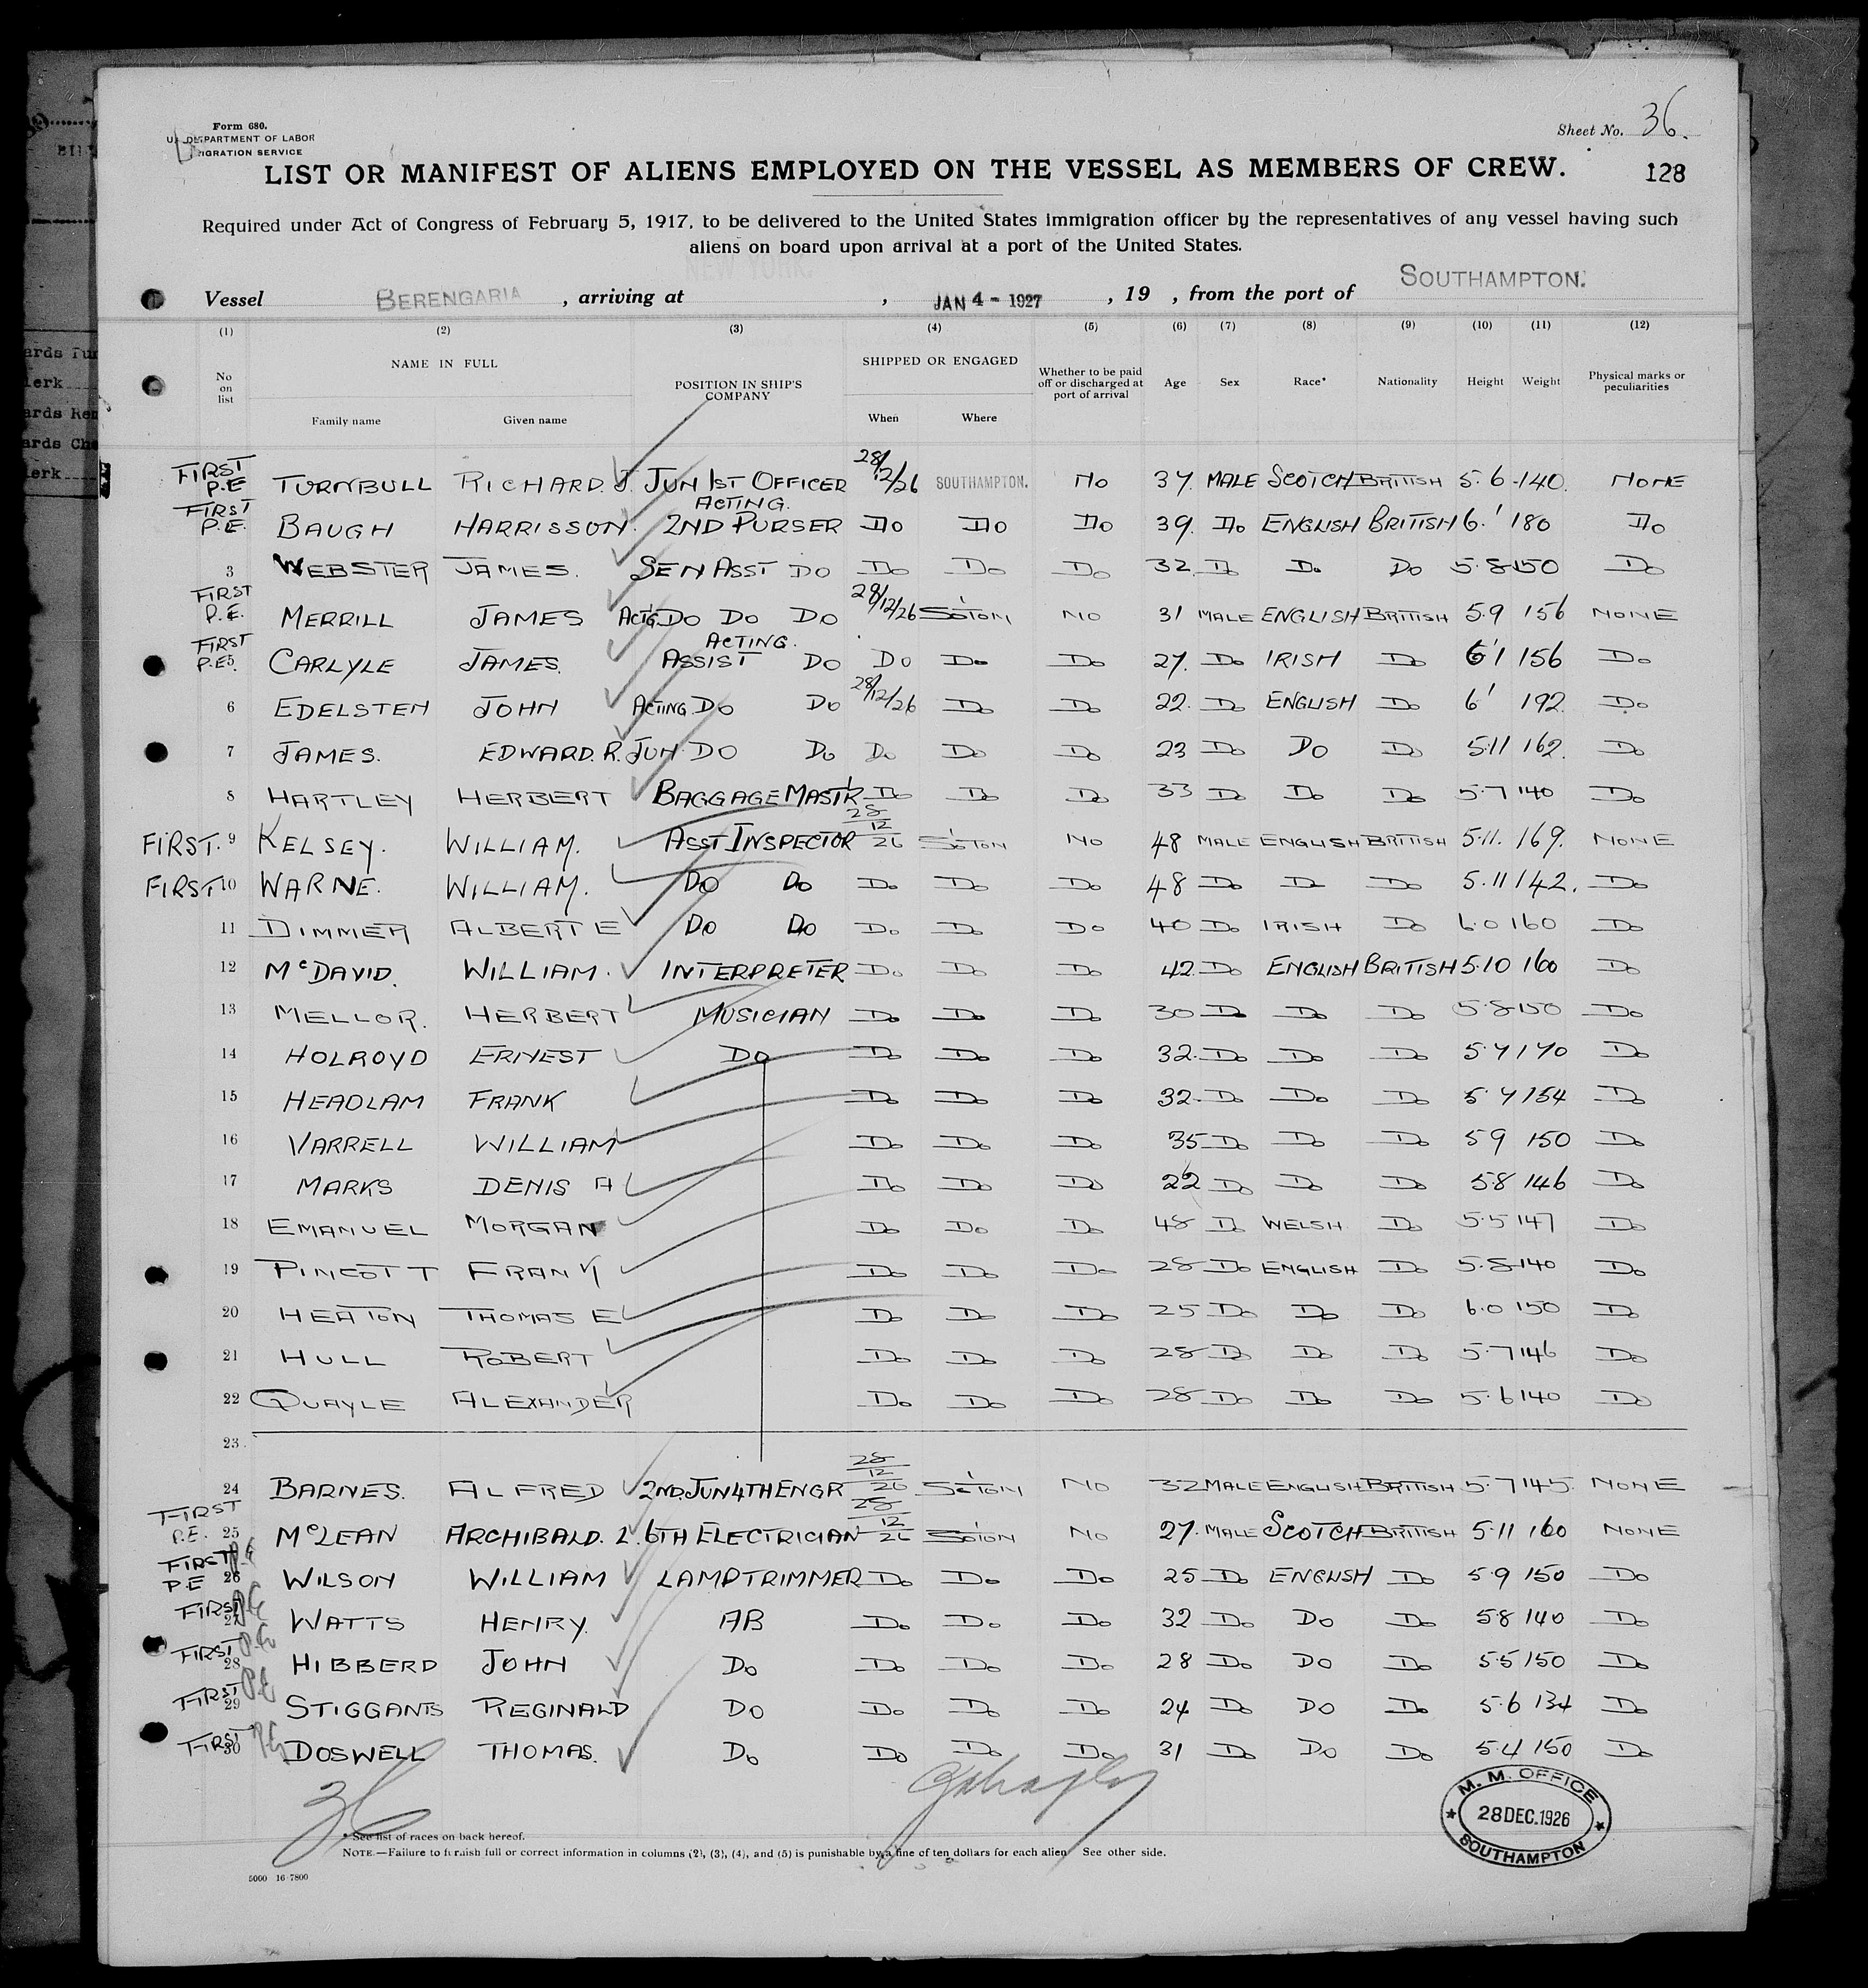 Form 680.
U. DEPARTMENT OF LABOR
IGRATION SERVICE
Sheet No. 36.
LIST OR MANIFEST OF ALIENS EMPLOYED ON THE VESSEL AS MEMBERS OF CREW.
128
Required under Act of Congress of February 5, 1917, to be delivered to the United States immigration officer by the representatives of any vessel having such
aliens on board upon arrival at a port of the United States.
NEW YORK.
Vessel BERENGARIA , arriving at , JAN 4 - 1927 , 19 , from the port of SOUTHAMPTON.
(1) (2) (3) (4) (5) (6) (7) (8) (9) (10) (11) (12)
No on list NAME IN FULL Family name Given name POSITION IN SHIP'S COMPANY SHIPPED OR ENGAGED When Where Whether to be paid off or discharged at port of arrival Age Sex Race* Nationality Height Weight Physical marks or peculiarities
FIRST P.E TURNBULL RICHARD. J. JUN 1ST OFFICER 28/12/26 SOUTHAMPTON. No 37. MALE SCOTCH BRITISH 5.6 140. NONE
FIRST P.E. BAUGH HARRISSON. ACTING. 2ND PURSER Do Do Do 39. Do ENGLISH BRITISH 6.' 180 Do
3 WEBSTER JAMES. SEN ASST DO Do Do Do 32 Do Do Do 5.8 150 Do
FIRST P.E. MERRILL JAMES ACTG. DO DO DO 28/12/26 S'OTON NO 31 MALE ENGLISH BRITISH 5.9 156 NONE
FIRST P.E 5. CARLYLE JAMES. ACTING. ASSIST DO DO Do Do 27. Do IRISH Do 6'1 156 Do
6 EDELSTEN JOHN ACTING DO DO 28/12/26 Do Do 22. Do ENGLISH Do 6' 192 Do
7 JAMES. EDWARD. R. JUN. DO DO Do Do Do 23 Do DO Do 5.11 162. Do
8 HARTLEY HERBERT BAGGAGE MASTR Do Do Do 33 Do Do Do 5.7 140 Do
FIRST. 9 KELSEY. WILLIAM. ASST INSPECTOR 28/12/26 S'OTON NO 48 MALE ENGLISH BRITISH 5.11. 169. NONE
FIRST 10 WARNE. WILLIAM. DO DO Do Do Do 48 Do Do Do 5.11 142. Do
11 DIMMER ALBERT E DO DO Do Do Do 40 Do IRISH Do 6.0 160 Do
12 McDAVID. WILLIAM. INTERPRETER Do Do Do 42. Do ENGLISH BRITISH 5.10 160 Do
13 MELLOR. HERBERT MUSICIAN Do Do Do 30 Do Do Do 5.8 150 Do
14 HOLROYD ERNEST DO Do Do Do 32. Do Do Do 5.7 170 Do
15 HEADLAM FRANK Do Do Do 32. Do Do Do 5.7 154 Do
16 VARRELL WILLIAM Do Do Do 35 Do Do Do 5 9 150 Do
17 MARKS DENIS A Do Do Do 22 Do Do Do 5.8 146 Do
18 EMANUEL MORGAN Do Do Do 48 Do WELSH Do 5.5 147 Do
19 PINCOTT FRANK Do Do Do 28 Do ENGLISH Do 5.8 140 Do
20 HEATON THOMAS E Do Do Do 25 Do Do Do 6.0 150 Do
21 HULL ROBERT Do Do Do 28 Do Do Do 5.7 146 Do
22 QUAYLE ALEXANDER Do Do Do 28 Do Do Do 5.6 140 Do
23
24 BARNES. ALFRED 2ND. JUN 4TH ENGR 28/12/26 S'OTON NO 32 MALE ENGLISH BRITISH 5.7 145 NONE
FIRST P.E. 25 McLEAN ARCHIBALD. L. 6TH ELECTRICIAN 28/12/26 S'OTON NO 27. MALE SCOTCH BRITISH 5.11 160 NONE
FIRST P.E P.E 26 WILSON WILLIAM LAMPTRIMMER Do Do Do 25 Do ENGLISH Do 5.9 150 Do
FIRST P.E 27 WATTS HENRY. AB Do Do Do 32 Do DO Do 5.8 140 Do
FIRST P.E 28 HIBBERD JOHN DO Do Do Do 28 Do DO Do 5.5 150 Do
FIRST P.E 29 STIGGANTS REGINALD DO Do Do Do 24 Do DO Do 5.6 134 Do
FIRST P.E 30 DOSWELL THOMAS. DO Do Do Do 31 Do DO Do 5.4 150 Do
36
M. M. OFFICE
28 DEC. 1926
SOUTHAMPTON
* See list of races on back hereof.
NOTE.—Failure to furnish full or correct information in columns (2), (3), (4), and (5) is punishable by a fine of ten dollars for each alien See other side.
5000 16-7800